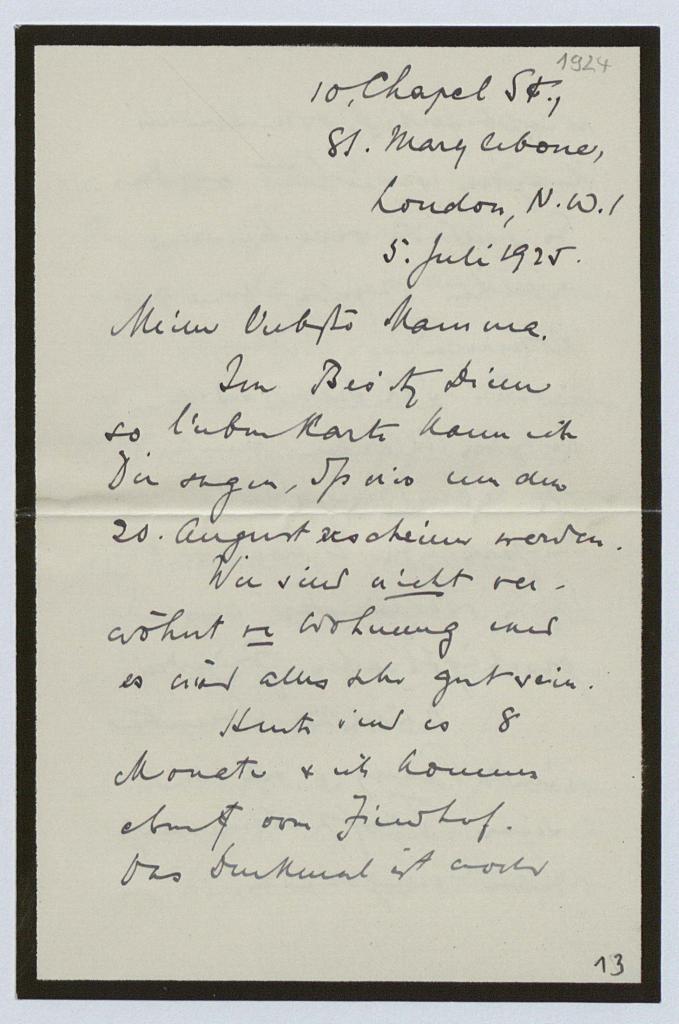 1924
10, Chapel St.,
St. Marylebone,
London, N.W.1
5. Juli 1925.
Meine liebste Mamma.
Im Besitz Deiner
so lieben Karte kann ich
Dir sagen, dß wir um den
20. August erscheinen werden.
Wir sind nicht ver-
wöhnt re Wohnung und
es wird alles sehr gut sein.
Heute sind es 8
Monate & ich komme
vom Friedhof.
Das Denkmal ist
13